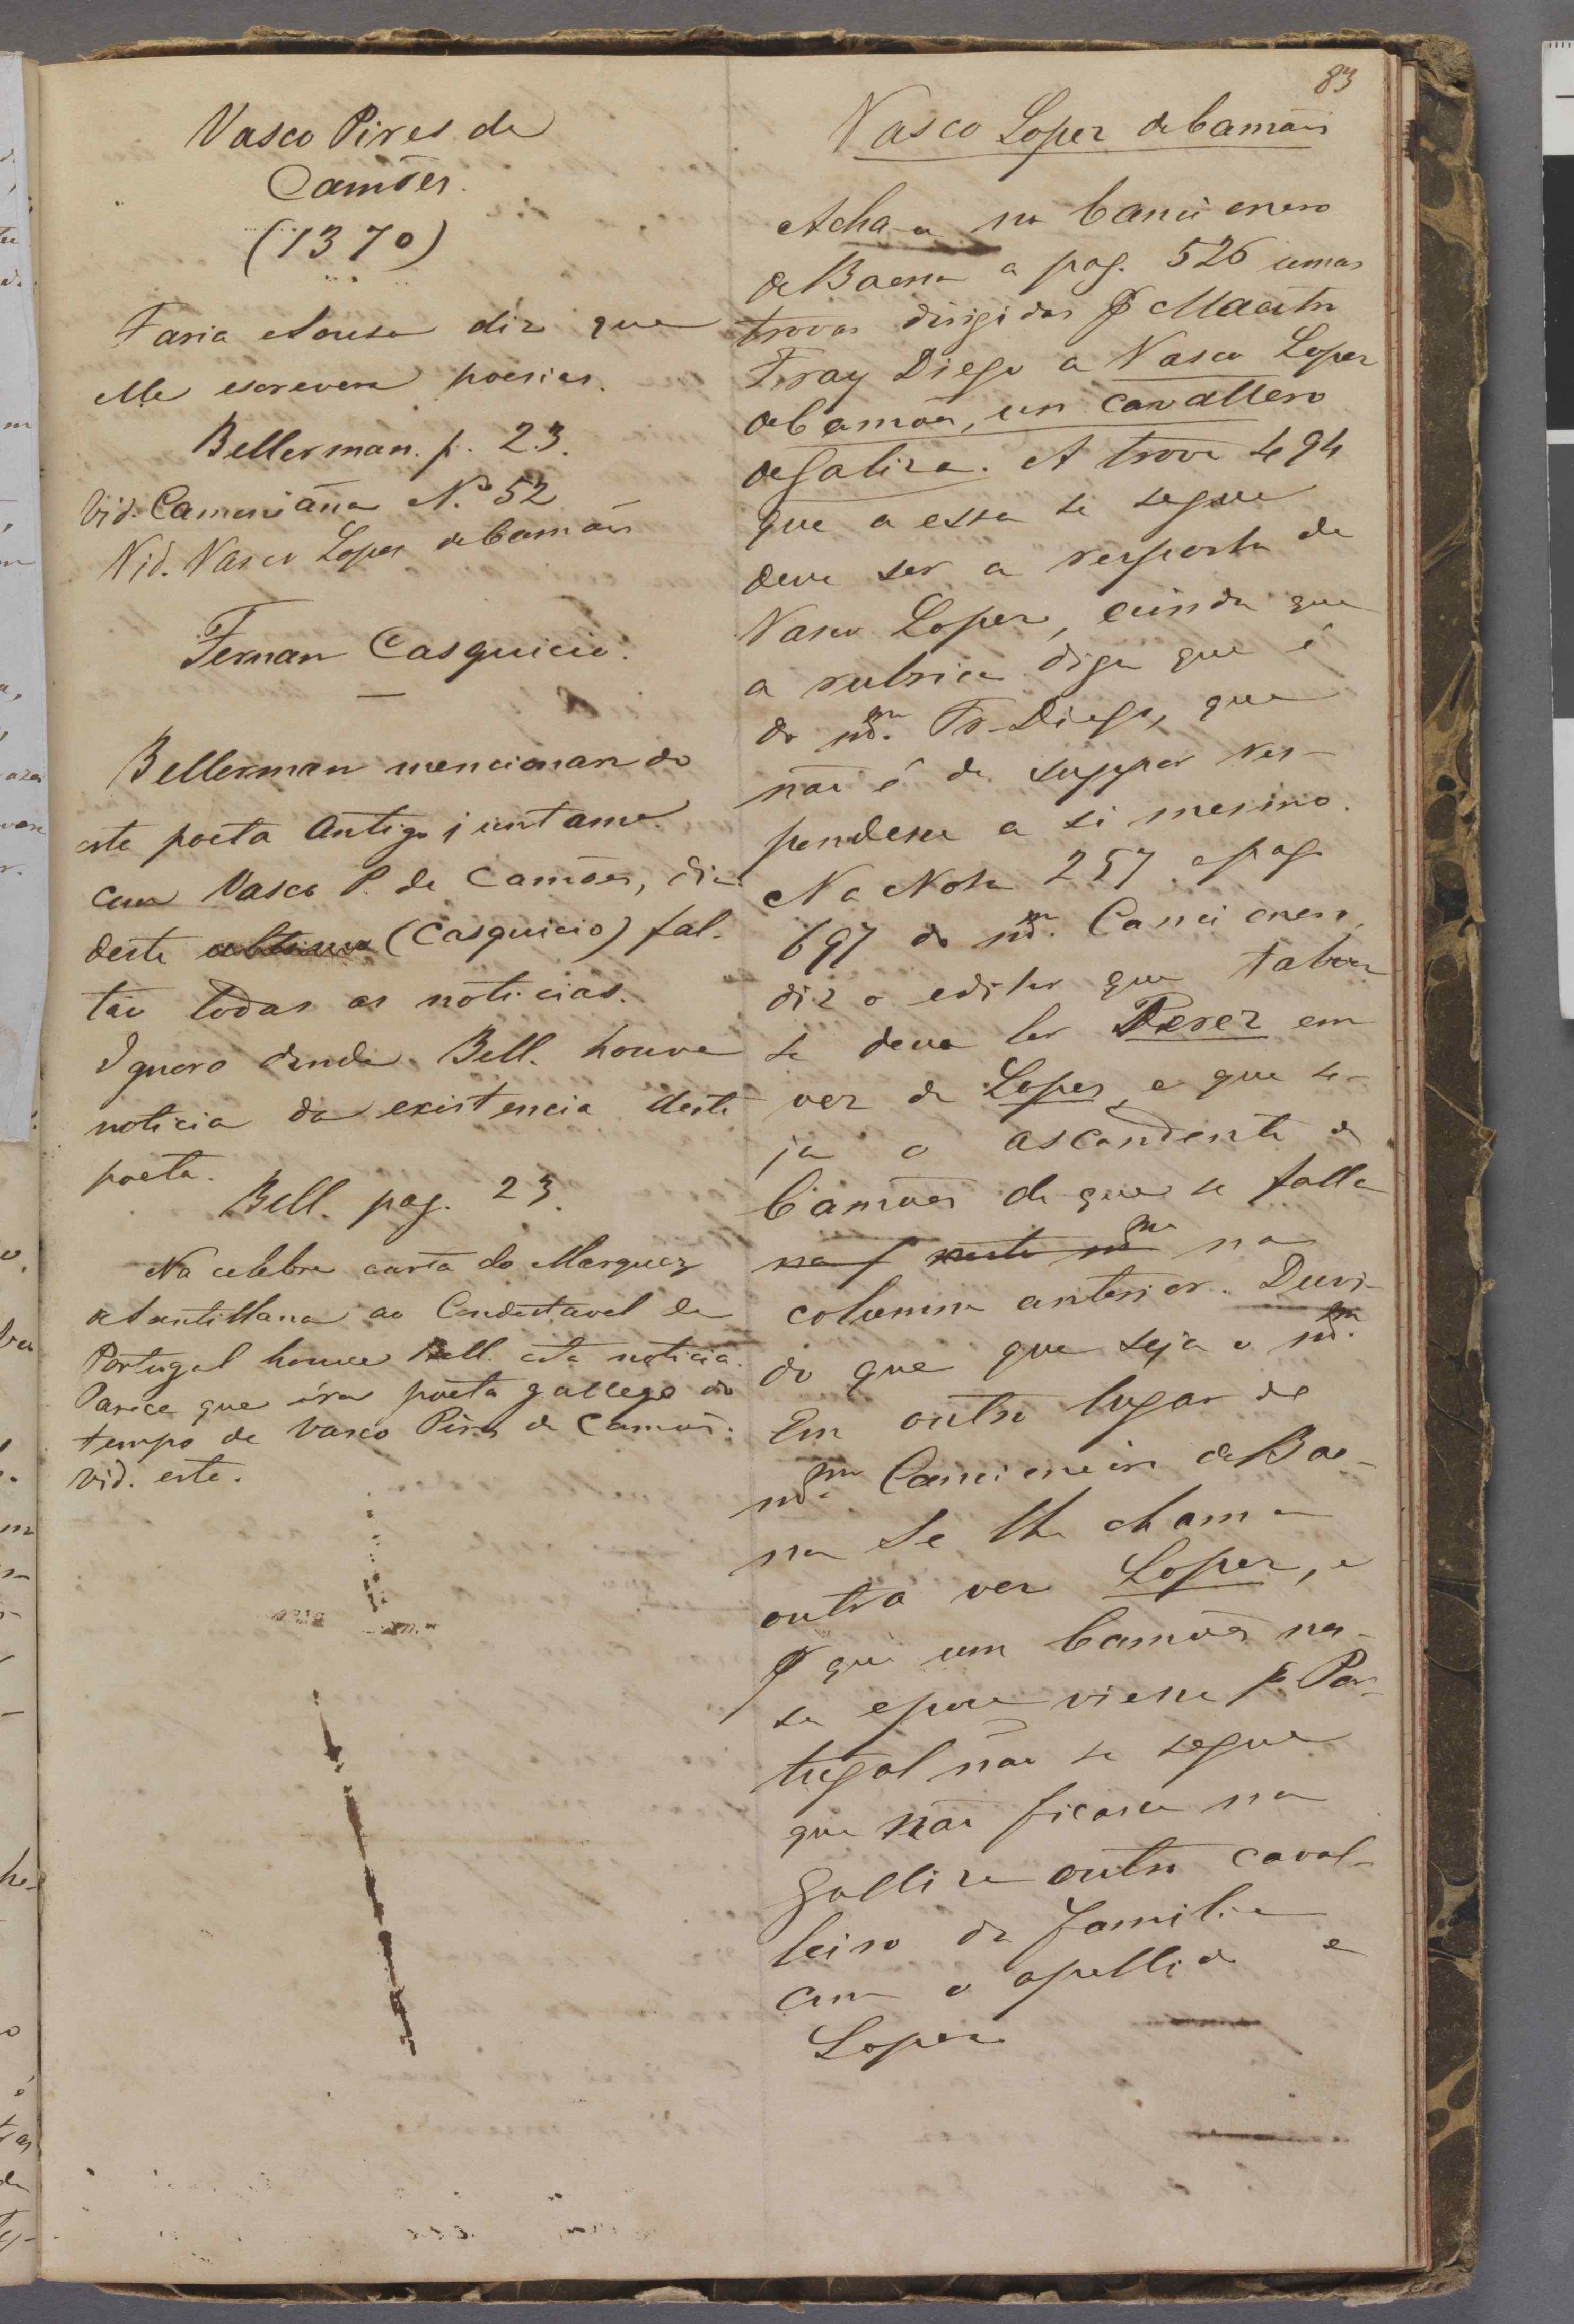 83
Vasco Pires de
Camões.
(1370)
Faria e Sousa diz que
elle escrevera poesias.
Bellerman. p. 23.
Vid. Cameniãna N.º 52
Vid. Vasco Lopez de Camões
Fernan Casquicio.
Bellerman mencionando
este poeta antigo juntame.
com Vasco P. de Camões, diz
deste ultimo (Casquicio) fal-
tão todas as noticias.
Ignoro donde Bell. houve
noticia da existencia deste
poeta.
Bell. pag. 23.
Na celebre carta do Marquez
de Santillana ao Condestavel de
Portugal houve Bell. esta noticia.
Parece que éra poeta gallego do
tempo de Vasco Pires de Camões.
vid. este.
Vasco Lopez de Camões
Acha-se no Cancionero
de Baena a pag. 526 umas
trovas dirigidas p Maestro
Fray Diego a Vasco Lopez
de Camões, un cavallero
de Galiza. A trova 494
que a essa se segue
deve ser a resposta de
Vasco Lopez, ainda que
a rubrica diga que é
do md.mo Fr. Diego, que
não é de suppor res-
pondesse a si mesmo.
Na Nota 257 a pag
697 do md.mo Cancionero,
diz o editor que talvez
se deva ler Perez em
vez de Lopez, e que se-
ja o ascendente de
Camões de que se falla
na neste md.mo na
columna anterior. Duvi-
do que que seja o md.mo
Em outro lugar do
md.mo Cancioneiro de Bae-
na se lhe chama
outra vez Lopez, e
p que um Camões pas-
sase viesse p.ª Por-
tugal não se segue
que não ficasse na
Galliza outro caval-
leiro da familia e
com o apellido
Lopez